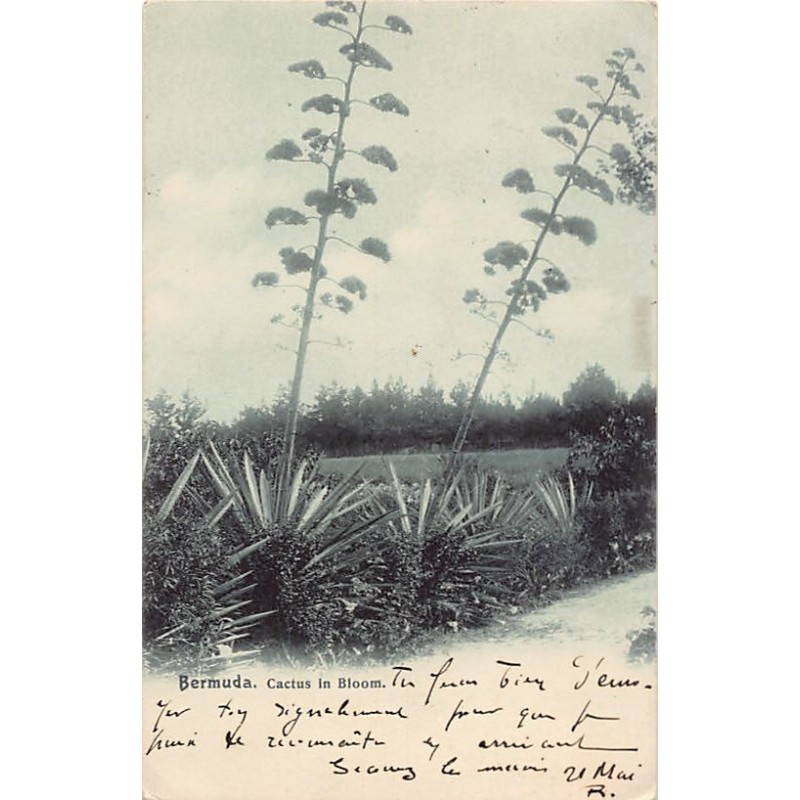 Bermuda. Cactus in Bloom. Tu feras bien d'envo-
yer ton signalement pour que je
puisse te reconnaître en arrivant
les mains 21 Mai
R.